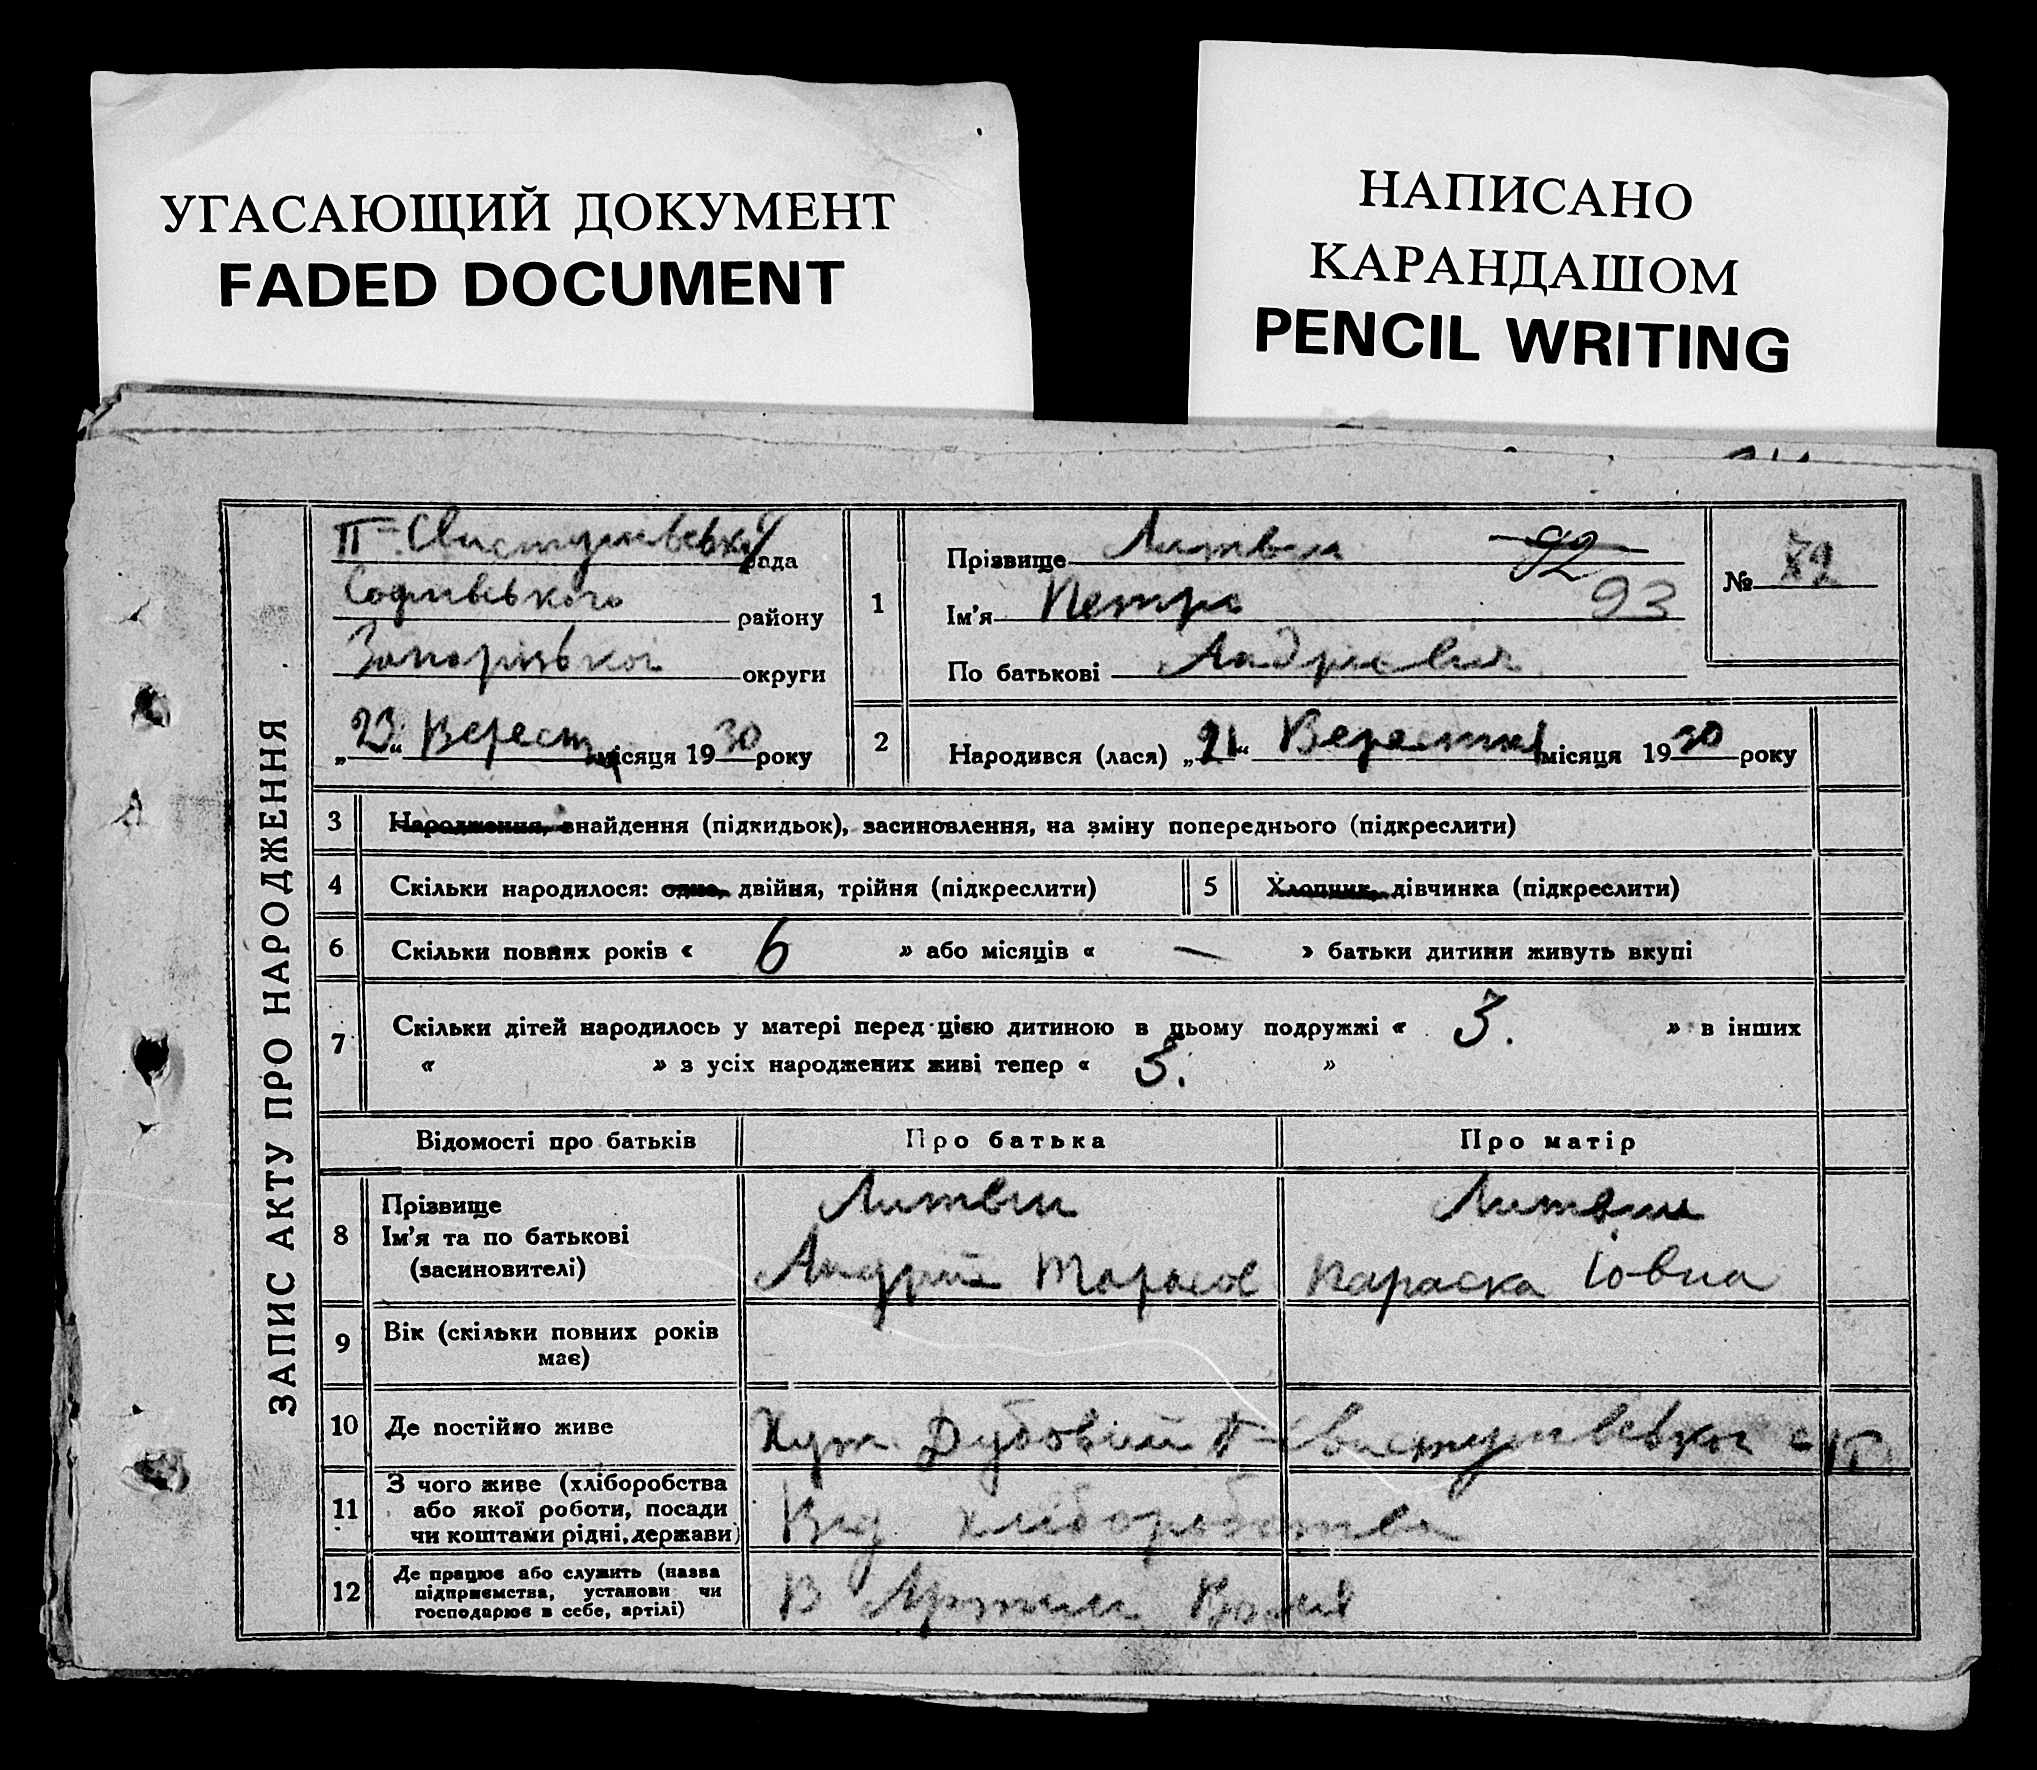 УГАСАЮЩИЙ ДОКУМЕНТ
FADED DOCUMENT
НАПИСАНО
КАРАНДАШОМ
PENCIL WRITING
ЗАПИС АКТУ ПРО НАРОДЖЕННЯ
П-Свистунівська рада
Софіївського району
Запорізької округи
„23“ Верест місяця 1930 року
1
Прізвище Литвин 92
Ім’я Петро 93
По батькові Андрієвич
№ 82
2
Народився (лася) „21“ Вересня місяця 1930 року
3 Народження, знайдення (підкидьок), засиновлення, на зміну попереднього (підкреслити)
4 Скільки народилося: одно, двійня, трійня (підкреслити)
5 Хлопчик, дівчинка (підкреслити)
6 Скільки повних років « 6 » або місяців « — » батьки дитини живуть вкупі
7 Скільки дітей народилось у матері перед цією дитиною в цьому подружжі « 3. » в інших
« » з усіх народжених живі тепер « 3. »
Відомості про батьків Про батька Про матір
8 Прізвище
Ім’я та по батькові
(засиновителі)
Литвин Литвин
Андрій Тарасов Параска Іовна
9 Вік (скільки повних років
має)
10 Де постійно живе Хут. Дубовий П-Свистунівської с/р
11 З чого живе (хліборобства
або якої роботи, посади
чи коштами рідні, держави)
Від хліборобства
12 Де працює або служить (назва
підприємства, установи чи
господарює в себе, артілі)
В Артили